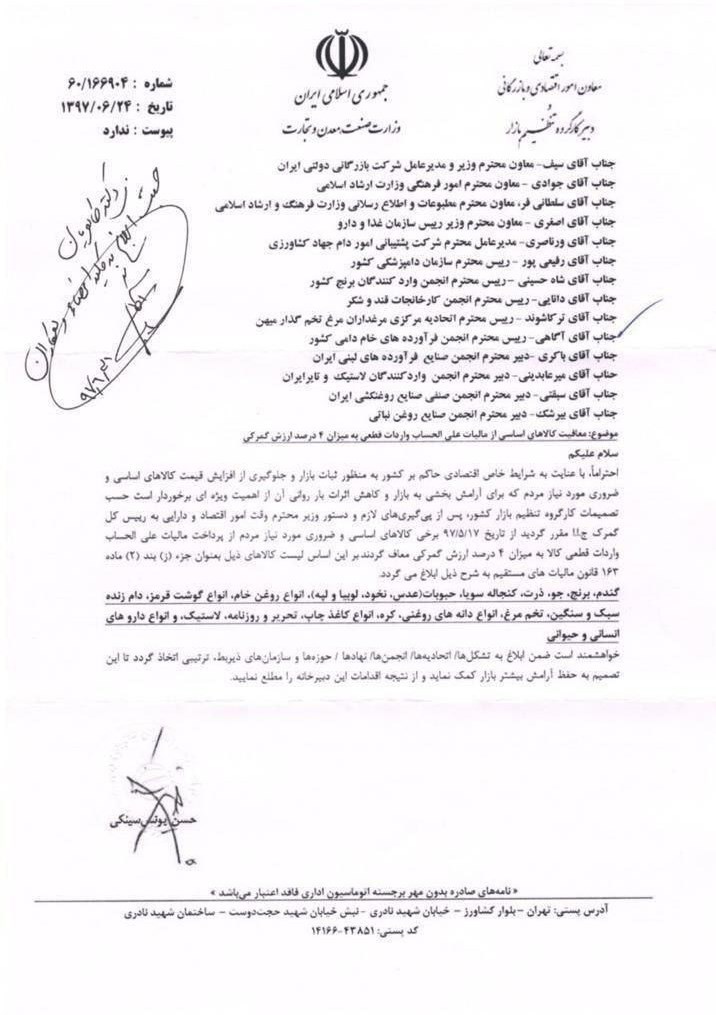 بسمه تعالی
معاون امور اقتصادی و بازرگانی
و
دبیر کارگروه تنظیم بازار
جمهوری اسلامی ایران
وزارت صنعت، معدن و تجارت
شماره : ۶۰/۱۶۶۹۰۴
تاریخ : ۱۳۹۷/۰۶/۲۴
پیوست : ندارد
جناب آقای سیف- معاون محترم وزیر و مدیرعامل شرکت بازرگانی دولتی ایران
جناب آقای جوادی - معاون محترم امور فرهنگی وزارت ارشاد اسلامی
جناب آقای سلطانی فر، معاون محترم مطبوعات و اطلاع رسانی وزارت فرهنگ و ارشاد اسلامی
جناب آقای اصغری - معاون محترم وزیر رییس سازمان غذا و دارو
جناب آقای ورناصری- مدیرعامل محترم شرکت پشتیبانی امور دام جهاد کشاورزی
جناب آقای رفیعی پور - رییس محترم سازمان دامپزشکی کشور
جناب آقای شاه حسینی – رییس محترم انجمن وارد کنندگان برنج کشور
جناب آقای دانایی- رییس محترم انجمن کارخانجات قند و شکر
جناب آقای ترکاشوند – رییس محترم اتحادیه مرکزی مرغداران مرغ تخم گذار میهن
جناب آقای آگاهی- رییس محترم انجمن فرآورده های خام دامی کشور
جناب آقای باکری -دبیر محترم انجمن صنایع فرآورده های لبنی ایران
جناب آقای میرعابدینی- دبیر محترم انجمن واردکنندگان لاستیک و تایرایران
جناب آقای سبقتی - دبیر محترم انجمن صنفی صنایع روغنکشی ایران
جناب آقای بیرشک- دبیر محترم انجمن صنایع روغن نباتی
موضوع: معافیت کالاهای اساسی از مالیات علی الحساب واردات قطعی به میزان ۴ درصد ارزش گمرکی
سلام علیکم
احتراماً، با عنایت به شرایط خاص اقتصادی حاکم بر کشور به منظور ثبات بازار و جلوگیری از افزایش قیمت کالاهای اساسی و
ضروری مورد نیاز مردم که برای آرامش بخشی به بازار و کاهش اثرات بار روانی آن از اهمیت ویژه ای برخوردار است حسب
تصمیمات کارگروه تنظیم بازار کشور، پس از پی‌گیری‌های لازم و دستور وزیر محترم وقت امور اقتصاد و دارایی به رییس کل
گمرک ج.ا.ا مقرر گردید از تاریخ ۹۷/۵/۱۷ برخی کالاهای اساسی و ضروری مورد نیاز مردم از پرداخت مالیات علی الحساب
واردات قطعی کالا به میزان ۴ درصد ارزش گمرکی معاف گردند.بر این اساس لیست کالاهای ذیل بعنوان جزء (ز) بند (۲) ماده
۱۶۳ قانون مالیات های مستقیم به شرح ذیل ابلاغ می گردد.
گندم، برنج، جو، ذرت، کنجاله سویا، حبوبات(عدس، نخود، لوبیا و لپه)، انواع روغن خام، انواع گوشت قرمز، دام زنده
سبک و سنگین، تخم مرغ، انواع دانه های روغنی، کره، انواع کاغذ چاپ، تحریر و روزنامه، لاستیک، و انواع دارو های
انسانی و حیوانی
خواهشمند است ضمن ابلاغ به تشکل‌ها/ اتحادیه‌ها/ انجمن‌ها/ نهادها / حوزه‌ها و سازمان‌های ذیربط، ترتیبی اتخاذ گردد تا این
تصمیم به حفظ آرامش بیشتر بازار کمک نماید و از نتیجه اقدامات این دبیرخانه را مطلع نمایید.
حسن یونس‌سینکی
« نامه‌های صادره بدون مهر برجسته اتوماسیون اداری فاقد اعتبار می‌باشد »
آدرس پستی: تهران – بلوار کشاورز – خیابان شهید نادری - نبش خیابان شهید حجت‌دوست – ساختمان شهید نادری
کد پستی: ۴۳۸۵۱-۱۴۱۶۶